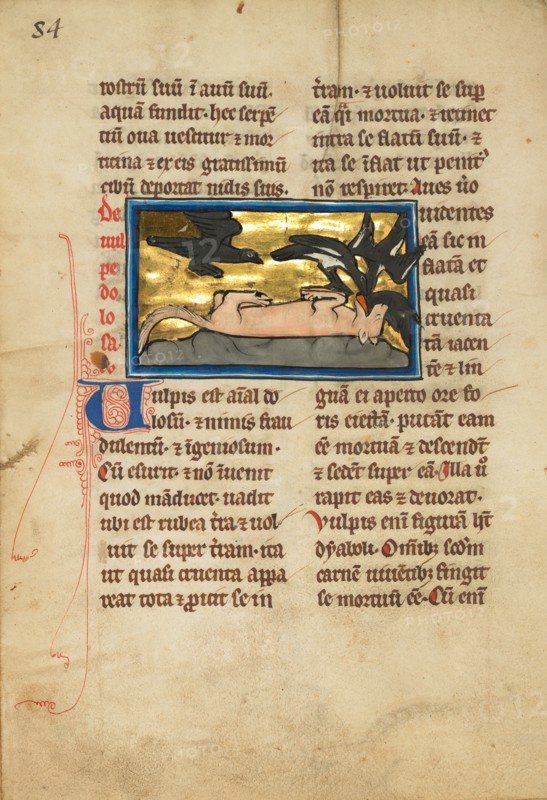 84
rostrū suū ī aluū suū.
aquā fundit. hec serpē
tiū oua uescitur ⁊ mor
ticina ⁊ ex eis gratissimū
cibū deportat nidis suis.
De
uul
pe
do
lo
sa
Uulpis est aīal do
losū. ⁊ nimis frau
dulentū. ⁊ īgeniosum.
Cū esurit ⁊ nō īuenit
quod māducet. uadit
ubi est rubea t̄ra ⁊ uol
uit se super t̄ram. ita
ut quasi cruenta appa
reat tota ⁊ ꝓicit se in
t̄ram. ⁊ uoluit se suꝑ
eā q̄i mortua. ⁊ retinet
intra se flatū suū. ⁊
ita se īflat ut penit᾽
nō respiret. Aues u̇o
uidentes
eā sic in
flatā et
quasi
cruenta
tā iacen
tē ⁊ lin
guā ei aperto ore fo
ris eiectā. putāt eam
eē mortuā ⁊ descendt̄
⁊ sedēt super eā. Illa u̇
rapit eas ⁊ deuorat.
Vulpis enī figurā ht̄
dyaboli. Om̄ibꝫ scdm̄
carnē uiuētibꝫ fingit
se mortuū eē. Cū enī
PHOTO12